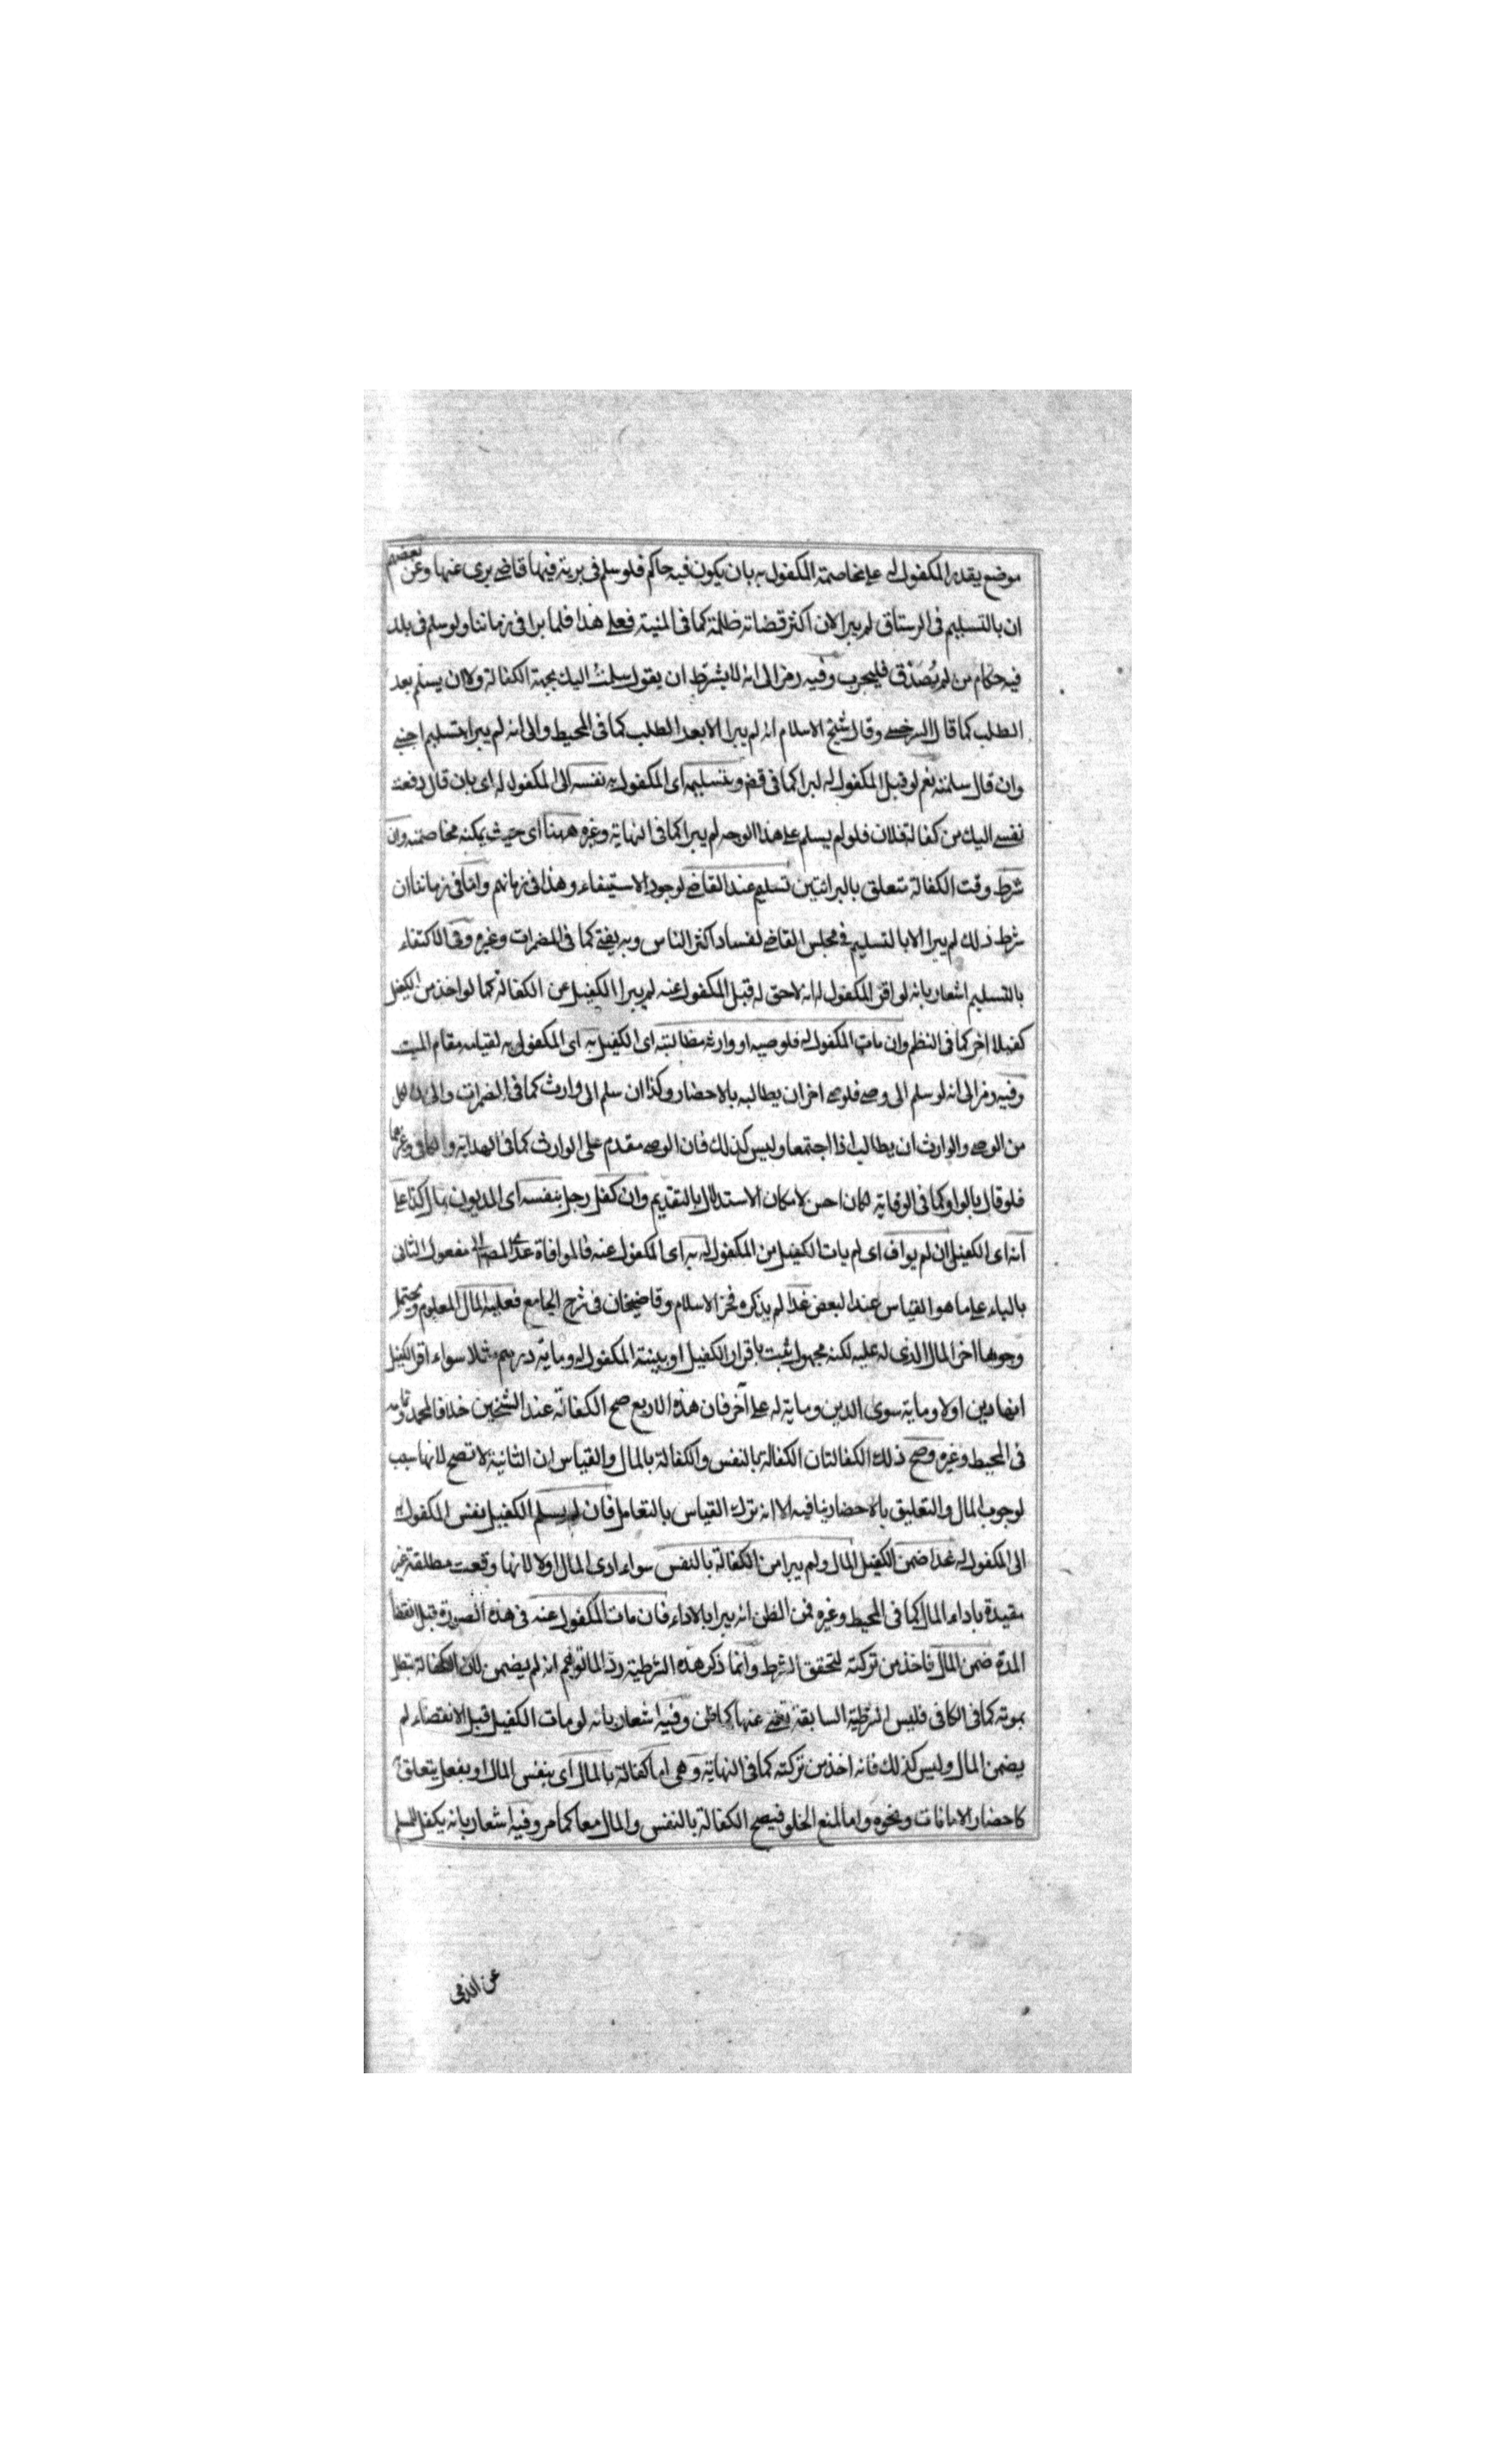 موضع يقدر المكفول له على مخاصمة المكفول به بان يكون فيه حاكم فلو سلم فى برية فيها قاضى برى عنها وعن بعضهم
ان بالتسليم فى الرستاق لم يبرا لان اكثر قضاته ظلمة كما فى المنية فعلى هذا فلما برا فى زماننا ولو سلم فى بلد
فيه حكام من لم يُصَدّق فليجرب وفيه رمز الى انه لا يشترط ان يقول سلمت اليك بجهة الكفالة ولا ان يسلم بعد
الطلب كما قال السرخسى وقال شيخ الاسلام انه لم يبرا الا بعد الطلب كما فى المحيط والى انه لم يبرا بتسليم اجنبى
وان قال سلمته نعم لو قبل المكفول له لبرا كما فى قض وبتسليمه اى المكفول به نفسه الى المكفول له اى بان قال دفعت
نفسى اليك من كفالة فلان فلو لم يسلم على هذا الوجه لم يبرا كما فى النهاية وغيره ههنا اى حيث يمكنه مخاصمته وان
شرط وقت الكفالة متعلق بالبرائتين تسليم عند القاضى لوجود الاستيفاء وهذا فى زمانهم واما فى زماننا ان
شرط ذلك لم يبرا الا بالتسليم فى مجلس القاضى لفساد اكثر الناس وبه يفتى كما فى المضمرات وغيره وفى الاكتفاء
بالتسليم اشعار بانه لو اقر المكفول له انه لا حق له قبل المكفول عنه لم يبرا الكفيل عن الكفالة كما لو اخذ من الكفيل
كفيلا اخر كما فى النظم وان مات المكفول له فلوصيه او وارثه مطالبته اى الكفيل به اى المكفول به لقيامه مقام الميت
وفيه رمز الى انه لو سلم الى وصى فلوصى اخر ان يطالبه بالاحضار وكذا ان سلم الى وارث كما فى المضمرات والى ان لكل
من الوصى والوارث ان يطالب اذا اجتمعا وليس كذلك فان الوصى مقدم على الوارث كما فى الهداية والكافى وغيرهما
فلو قال بالواو كما فى الوقاية لكان احسن لامكان الاستدلال بالتقديم وان كفل رجل بنفسه اى المديون بمال كذا على
انه اى الكفيل ان لم يواف اى لم يات الكفيل من المكفول له به اى المكفول عنه فالموافاة عدى المفعول الثانى
بالباء على ما هو القياس عند البعض غدا لم يذكره فخر الاسلام وقاضيخان فى شرح الجامع فعليه المال المعلوم ويحتمل
وجوها اخر المال الذى له عليه لكنه مجهول ثبت باقرار الكفيل او ببينة المكفول له وماية درهم مثلا سواء اقر الكفيل
انها دين اولا وماية سوى الدين وماية له على آخر فان هذه الاربع صح الكفالة عند الشيخين خلافا لمحمد وتمامه
فى المحيط وغيره وصح ذلك الكفالتان الكفالة بالنفس والكفالة بالمال والقياس ان الثانية لا تصح لانها سبب
لوجوب المال والتعليق بالاحضار ينافيه الا انه ترك القياس بالتعامل فان لم يسلم الكفيل نفس المكفول به
الى المكفول له غدا ضمن الكفيل المال ولم يبرا من الكفالة بالنفس سواء ادى المال اولا لانها وقعت مطلقة غير
مقيدة باداء المال كما فى المحيط وغيره فمن الظن انه يبرا بالاداء فان مات المكفول عنه فى هذه الصورة قبل انقضا
المدة ضمن المال فاخذ من تركته لتحقق الشرط وانما ذكر هذه الشرطية ردّ لما توهم انه لم يضمن لان الكفالة تبطل
بموته كما فى الكافى فليس الشرطية السابقة تغنى عنها كما ظن وفيه اشعار بانه لو مات الكفيل قبل الانقضاء لم
يضمن المال وليس كذلك فانه اخذ من تركته كما فى النهاية وهى اما كفالة بالمال اى بنفس المال او بفعل يتعلق به
كاحضار الامانات ونحوه واما لمنع الخلو فيصح الكفالة بالنفس والمال معا كما مر وفيه اشعار بانه يكفل المسلم
عن الذمى